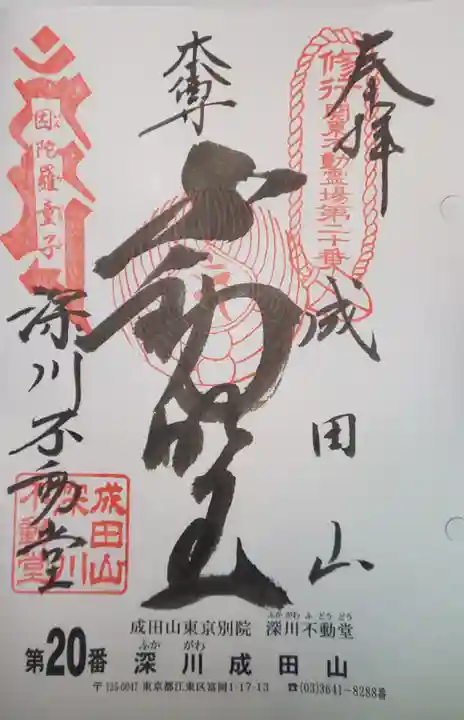 奉拝
修行 関東不動霊場第二十番
成田山
本尊
不動明王
因陀羅童子
深川不動堂
成田山
深川
不動堂
成田山東京別院 深川不動堂
ふか がわ ふ どう どう
第20番 深川成田山
ふか がわ
〒135-0047 東京都江東区富岡1-17-13 ☎(03)3641-8288番